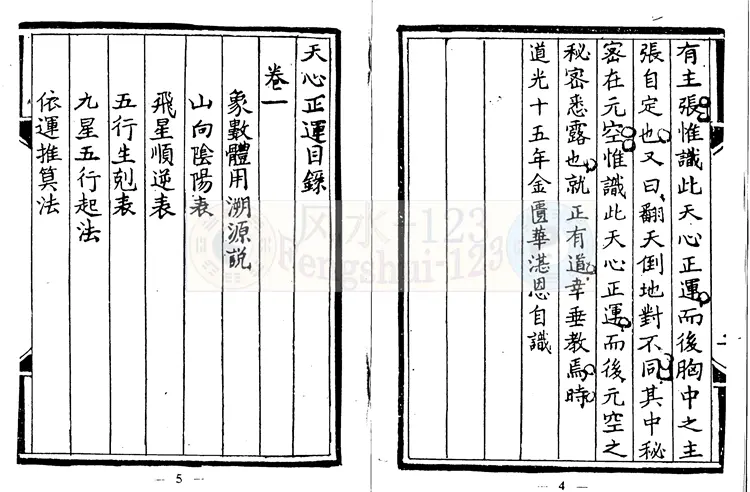 有主張惟識此天心正運而後胸中之主
張自定也又曰翻天倒地對不同其中秘
密在元空惟識此天心正運而後元空之
秘密悉露也就正有道幸垂教焉時
道光十五年金匱華湛恩自識
一
— 4 —
天心正運目錄
卷一
象數體用溯源説
山向陰陽表
飛星順逆表
五行生剋表
九星五行起法
依運推算法
— 5 —
风水-123
Fengshui-123